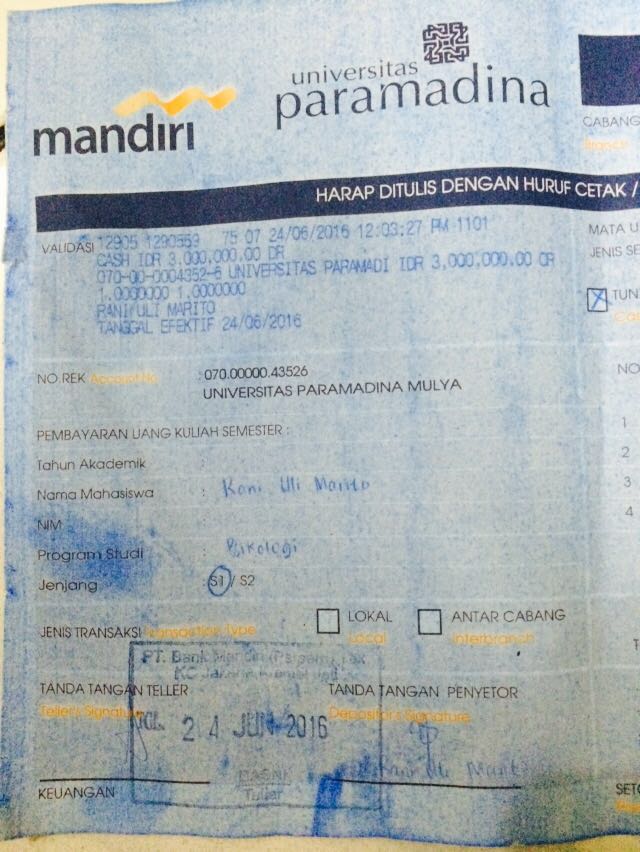 mandiri
universitas
paramadina
CABANG
Branch
HARAP DITULIS DENGAN HURUF CETAK /
VALIDASI
12905 1290559 75 07 24/06/2016 12:03:27 PM 1101
CASH IDR 3,000,000.00 DR
070-00-0004352-6 UNIVERSITAS PARAMADI IDR 3,000,000.00 CR
1.0000000 1.0000000
RANI ULI MARITO
TANGGAL EFEKTIF 24/06/2016
MATA U
JENIS SE
TUN
NO.REK Account No. : 070.00000.43526
UNIVERSITAS PARAMADINA MULYA
NO
PEMBAYARAN UANG KULIAH SEMESTER :
1
Tahun Akademik :
2
Nama Mahasiswa : Rani Uli Marito
3
NIM :
4
Program Studi : Psikologi
Jenjang : S1 / S2
JENIS TRANSAKSI Transaction Type
LOKAL
Local
ANTAR CABANG
Interbranch
PT. Bank Mandiri (Persero) Tbk
KC Jakarta
TANDA TANGAN TELLER
Teller's Signature
TANDA TANGAN PENYETOR
Depositor's Signature
TGL. 24 JUN 2016
Uli Marito
Teller
KEUANGAN
SETO